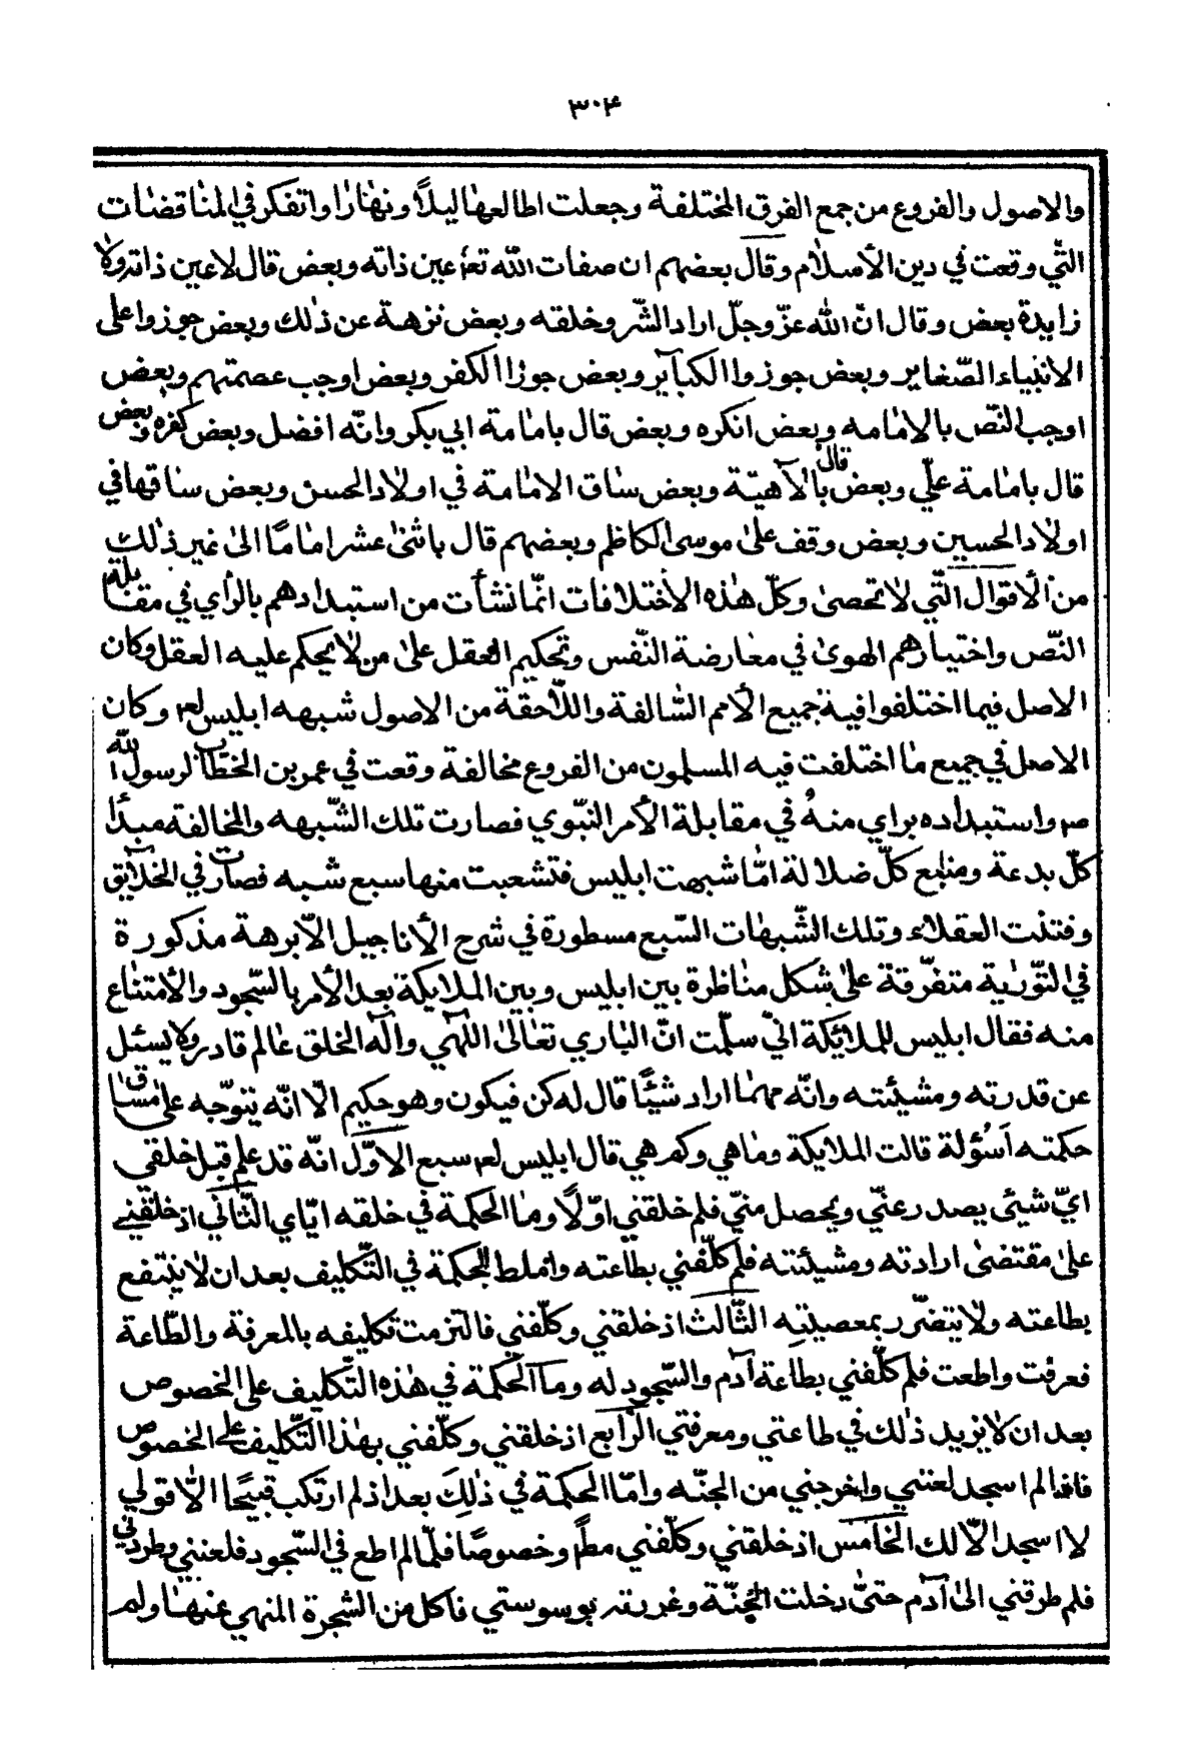 ۳۰۴
والاصول والفروع من جمع الفرق المختلفة وجعلت اطالعها ليلاً ونهاراً واتفكر في المناقضات
التّي وقعت في دين الأسلام وقال بعضهم ان صفات الله تعٰ عين ذاته وبعض قال لاعين ذاته ولا
زايدة بعض وقال انّ الله عزّ وجلّ اراد الشّر وخلقه وبعض نزهة عن ذلك وبعض جوزوا على
الانبياء الصّغاير وبعض جوزوا الكبآير وبعض جوزا الكفر وبعض اوجب عصمتهم وبعض
اوجب النّص بالامامه وبعض انكره وبعض قال بامامة ابي بكر وانّه افضل وبعض كفره وبعض
قال بامامة علّي وبعض قال بالآهيّة وبعض ساق الامامة في اولاد الحسن وبعض ساقها في
اولاد الحسين وبعض وقف على موسى الكاظم وبعضهم قال باثنى عشر اماماً الى غير ذلك
من الأقوال التّي لا تحصى وكلّ هذه الأختلافات انّما نشأت من استبدادهم بالرأي في مقابلة
النّص واختيارهم الهوىٰ في معارضة النّفس وتحكيم العقل على من لا يحكم عليه العقل وكان
الاصل فيما اختلفوا فية جميع الأمم السّالفة واللاّحقة من الاصول شبهه ابليس لعم وكان
الاصل في جميع ما اختلفت فيه المسلمون من الفروع مخالفة وقعت في عمر بن الخطّاب لرسول الله
صم واستبداده براي منهُ في مقابلة الأمر النّبوي فصارت تلك الشّبهه والمخالفة مبدأ
كلّ بدعة ومنبع كلّ ضلالة امّا شبهت ابليس فتشعبت منها سبع شبه فصارت في الخلآئق
وفتذت العقلاء وتلك الشّبهات السّبع مسطورة في شرح الأناجيل الاّبرهة مذكورة
في التّورية متفرّقة على شكل مناظرة بين ابليس وبين الملايكة بعد الأمر بالسّجود والأمتناع
منه فقال ابليس للملائكة انّي سلّمت انّ الباري تعالىٰ اللهي وآله الخلق عالم قادر ولا يسئل
عن قدرته ومشيئته وانّه مهما اراد شيئاً قال له كن فيكون وهو حكيم الاّ انّه يتوجّه على مساق
حكمته اَسُؤلة قالت الملايكة وما هي وكم هي قال ابليس لعم سبع الاوّل انّه قد علم قبل خلقى
ايّ شيئى يصدر عنّي ويحصل منّي فلم خلقني اوّلاً وما الحكمة في خلقه ايّاي الثّاني اذ خلقني
على مقتضىٰ ارادته ومشيئته فلم كلّفني بطاعته واملط الحكمة في التّكليف بعد ان لا ينتفع
بطاعته ولا يتضّرر بمعصيته الثّالث اذ خلقني وكلّفني فالتزمت تكليفه بالمعرفة والطّاعة
فعرفت واطعت فلم كلّفني بطاعة آدم والسّجود له وما الحكمة في هذه التّكليف على الخصوص
بعد ان لا يزيد ذلك في طاعتي ومعرفتي الرّابع اذ خلقني وكلّفني بهذا التّكليف على الخصوص
فاذا لم اسجد لعنني واخرجني من الجنّه وامّا الحكمة في ذلك بعد اذ لم ارتكب قبيحاً الاّ قولي
لا اسجد الاّ لك الخامس اذ خلقتني وكلّفني مطم وخصوصاً فلّما لم اطع في السّجود فلعنني وطردني
فلم طرقني الى آدم حتّى دخلت الجنّة وغررته بوسوستي فاكل من الشجرة المنهي عنها ولم